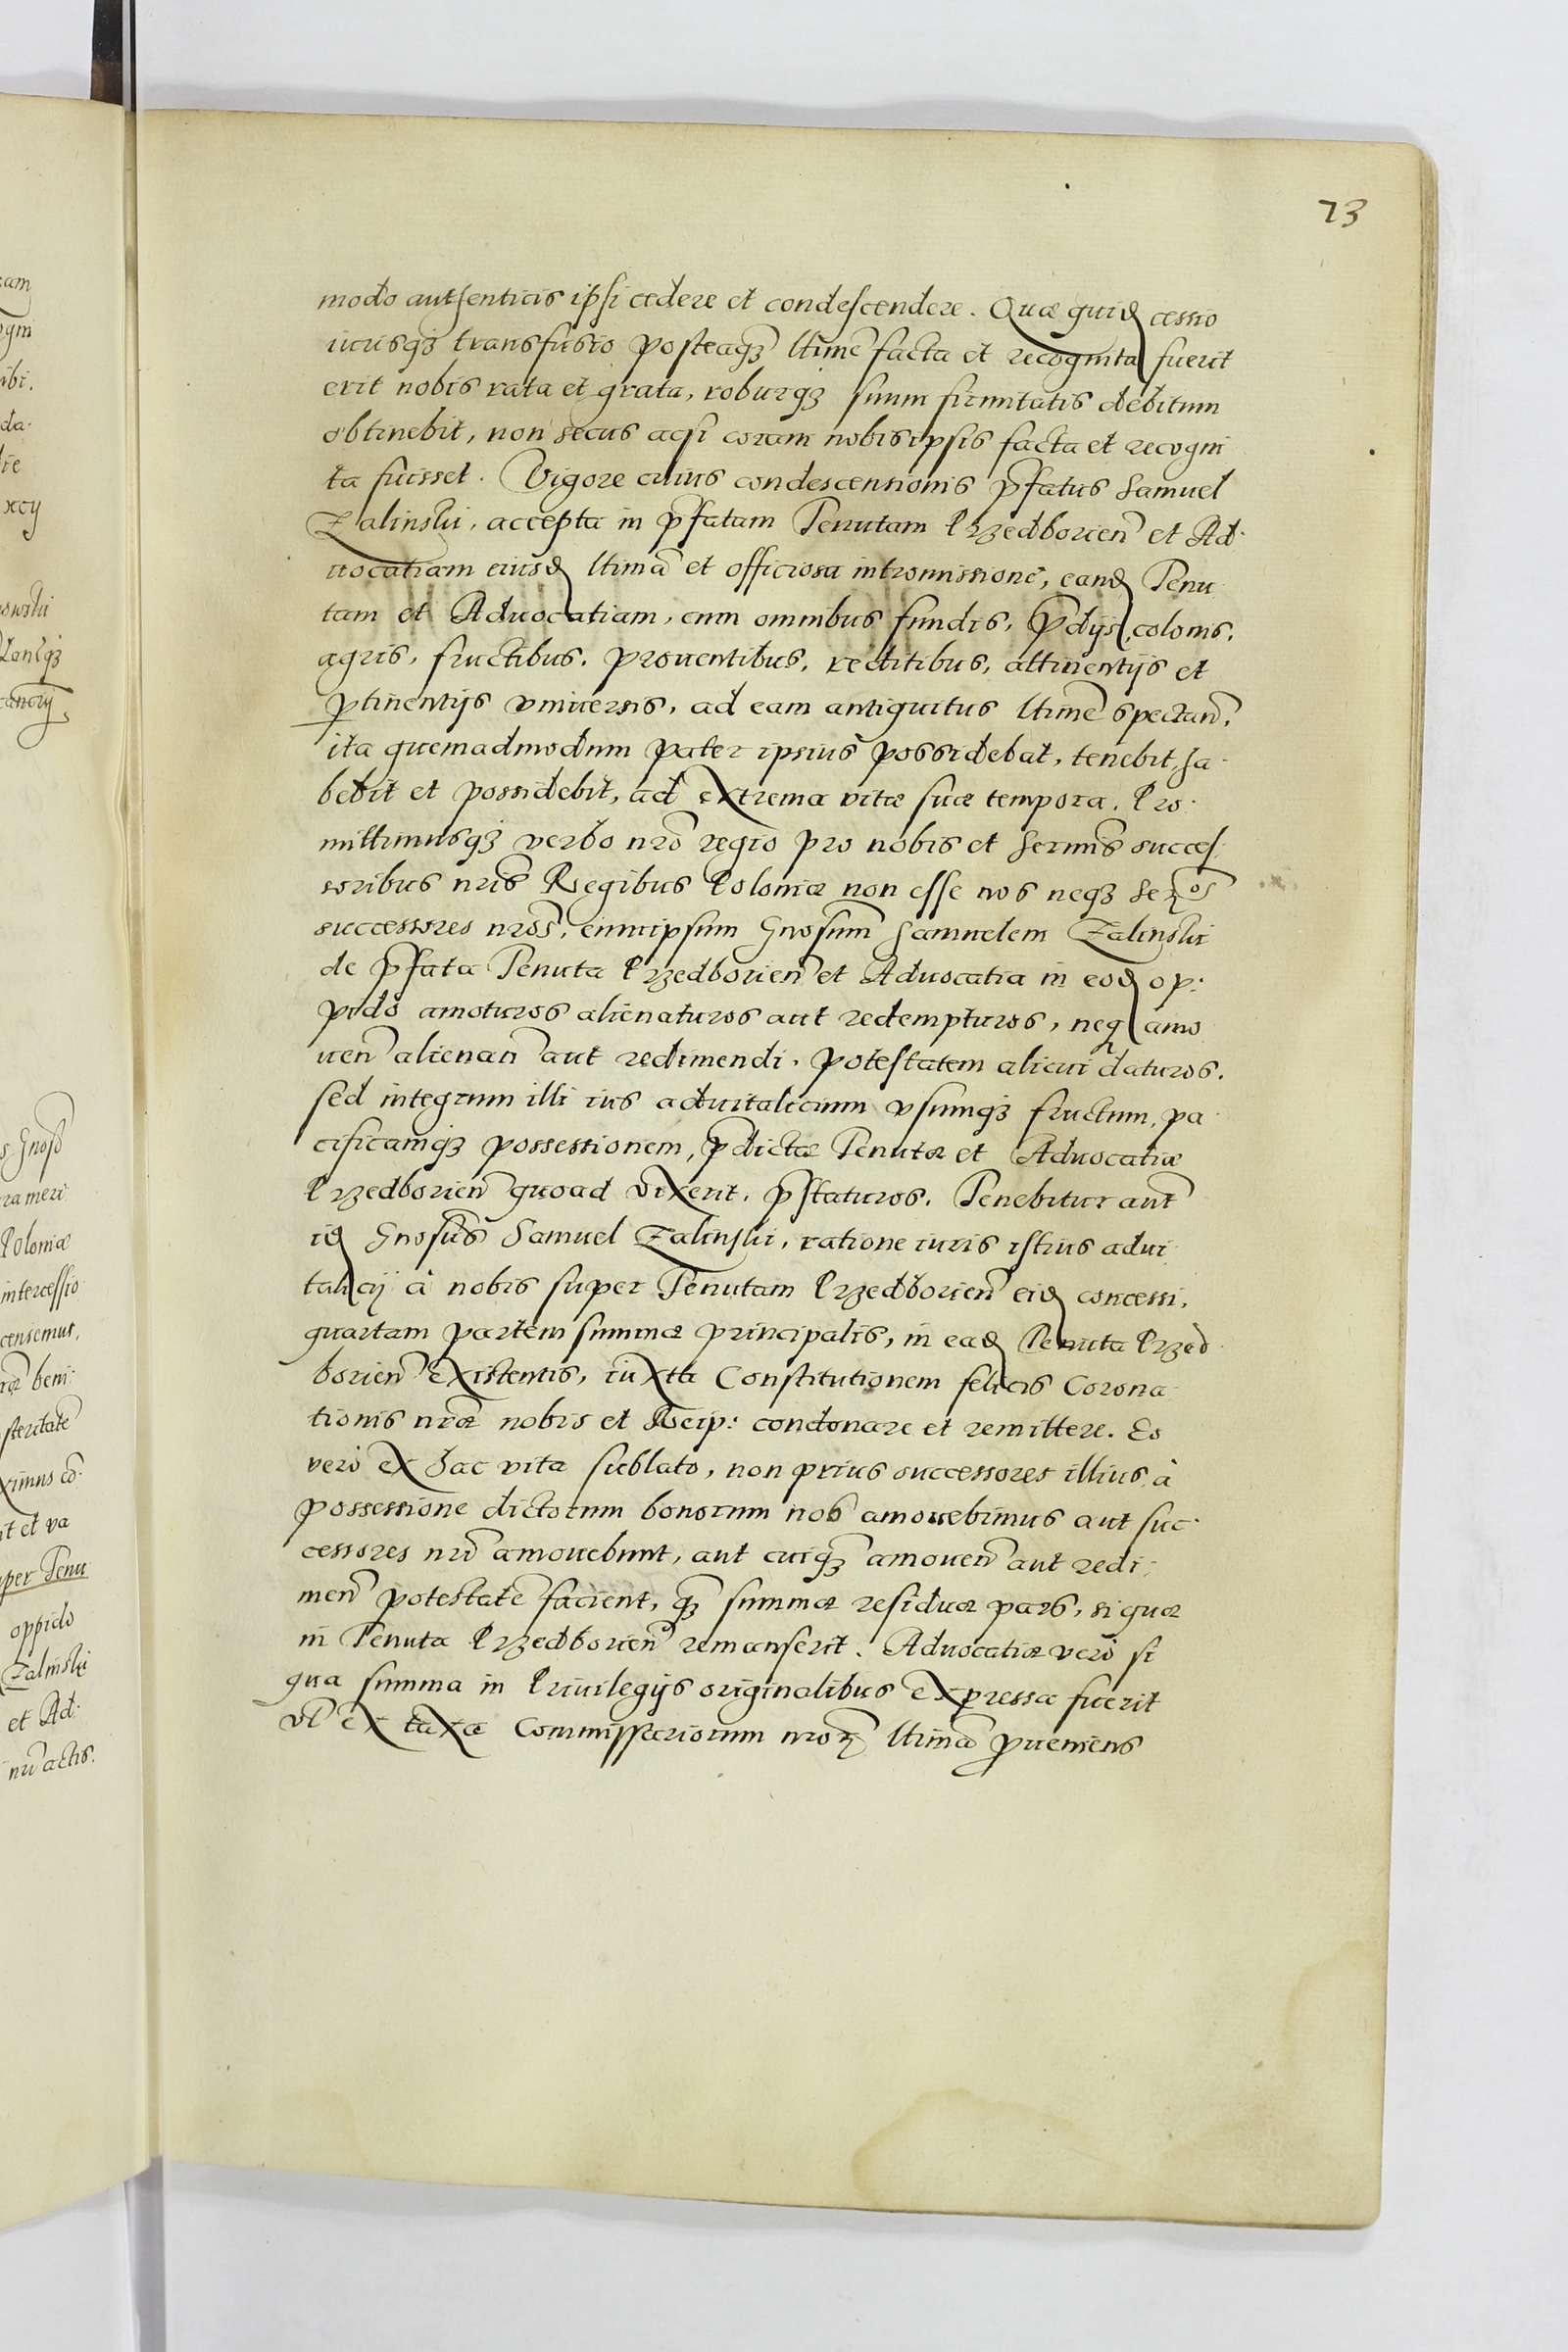 73
modo authenticis ipsi cedere et condescendere. Quae quid cessio
iurisq3 transfusio posteaq3 ltime facta et recognita fuerit
erit nobis rata et grata, roburq3 suum firmitatis debitum
obtinebit, non secus acsi coram nobis ipsis facta et recogni
ta fuisset. Vigore cuius condescensionis pfatus Samuel
Zalinski, accepta in pfatam Tenutam Przedborien et Ad.
uocatiam eiusd ltima et officiosa intromissione, eand Tenu
tam et Aduocatiam, cum omnibus fundis, pdijs, colonis,
agris, fructibus, prouentibus, redditibus, attinentijs et
ptinentijs vniuersis, ad eam antiquitus ltime spectan,
ita quemadmodum pater ipsius possidebat, tenebit, ha.
bebit et possidebit, ad extrema vitae suae tempora. Pro.
mittimusq3 verbo nro regio pro nobis et Sermis succes.
soribus nris Regibus Poloniae non esse nos neq3 Ser os
successores nros, eum ipsum Gnosum Samuelem Zalinski
de pfata Tenuta Przedborien et Aduocatia in eod op:
pido amoturos alienaturos aut redempturos, neq amo
uen alienan aut redimendi, potestatem alicui daturos.
sed integrum illi ius aduitalicium vsumq3 fructum, pa.
cificamq3 possessionem, pdictae Tenutae et Aduocatiae
Przedborien quoad vixerit, pstaturos. Tenebitur aut
id Gnosus Samuel Zalinski, ratione iuris istius adui
talicij à nobis super Tenutam Przedborien eid concessi,
quartam partem summae principalis, in ead Tenuta Przed.
borien existentis, iuxta Constitutionem felicis Corona
tionis nrae nobis et Reip: condonare et remittere. Eo
vero ex hac vita sublato, non prius successores illius à
possessione dictorum bonorum nos amouebimus aut suc.
cessores nri amouebunt, aut cuiq3 amouen aut redi:
men potestate facient, q3 summae residuae pars, si quae
in Tenuta Przedborien remanserit. Aduocatiae verò si
qua summa in Priuilegijs originalibus expressa fuerit
vl ex taxa Commissariorum nroꝝ ltima pueniens